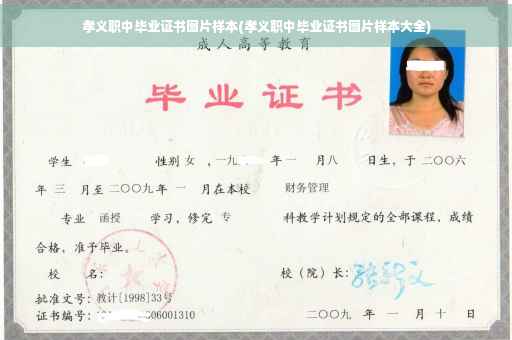 孝义职中毕业证书图片样本(孝义职中毕业证书图片样本大全)
成人高等教育
毕业证书
学生 性别 女 ,一九 年 一 月八 日生，于 二〇〇六
年 三 月至 二〇〇九年 一 月在本校 财务管理
专业 函授 学习，修完 专 科教学计划规定的全部课程，成绩
合格，准予毕业。
校 名： 校（院）长：
批准文号：教计[1998]33号
证书编号： 006001310 二〇〇九 年 一 月 十 日